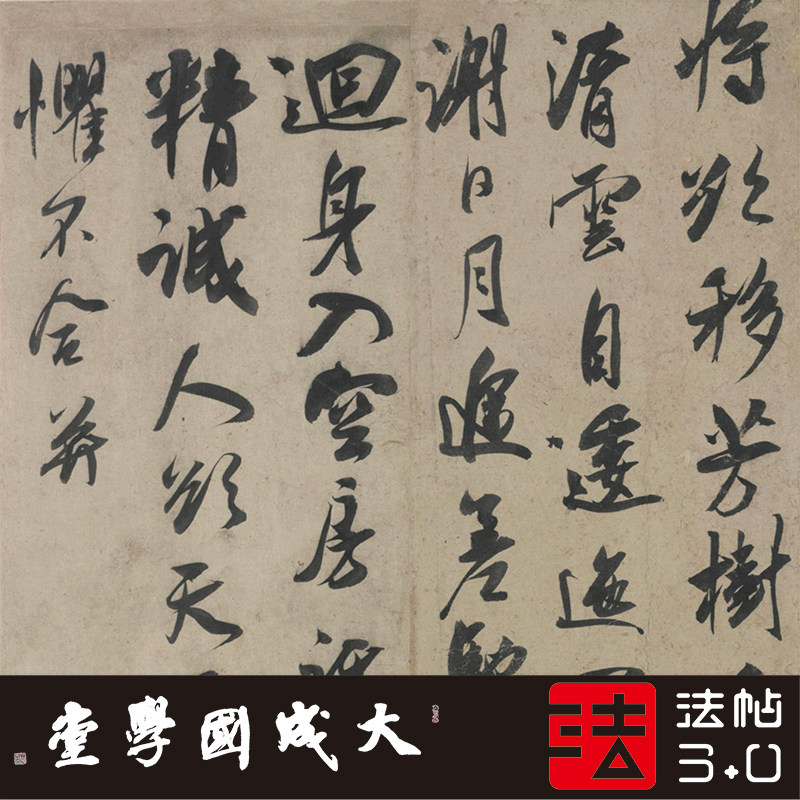 將欲移芳樹
清雲自逶迤
謝日月遞差馳
迴身入空房託
精誠人欲天
懼不合并
大成國學堂
法
法帖
3.0